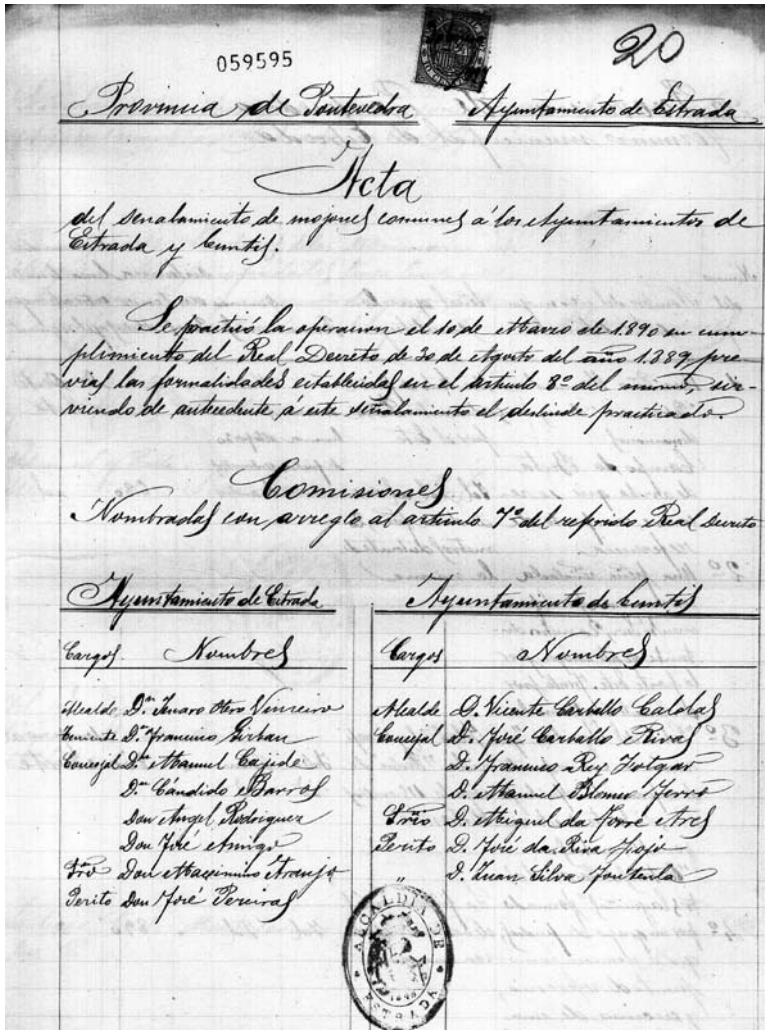 059595
20
Provincia de Pontevedra Ayuntamiento de Estrada
Acta
del señalamiento de mojones comunes á los Ayuntamientos de
Estrada y Cuntis.
Se practicó la operacion el 10 de Marzo de 1.890 en cum-
plimiento del Real Decreto de 30 de Agosto del año 1.889, pre-
vias las formalidades establecidas en el artículo 8º del mismo, sir-
viendo de antecedente á este señalamiento el deslinde practicado.
Comisiones
Nombradas con arreglo al artículo 7º del referido Real Decreto
Ayuntamiento de Estrada Ayuntamiento de Cuntis
Cargos Nombres Cargos Nombres
Alcalde D.n Jenaro Otero Alcalde D. Vicente Carballo Caldas
Teniente D.n Francisco Concejal D. José Carballo Rivas
Concejal D.n Manuel Cajide D. Francisco Rey Folgar
D.n Cándido Barros D. Manuel Blanco Ferro
Don Angel Rodriguez Srio D. Miguel da Torre Ares
Don José Amigo Perito D. José da Riva
Srio Don Maximino Araujo " D. Juan Silva Fontenla
Perito Don José Pereiras
ALCALDIA DE